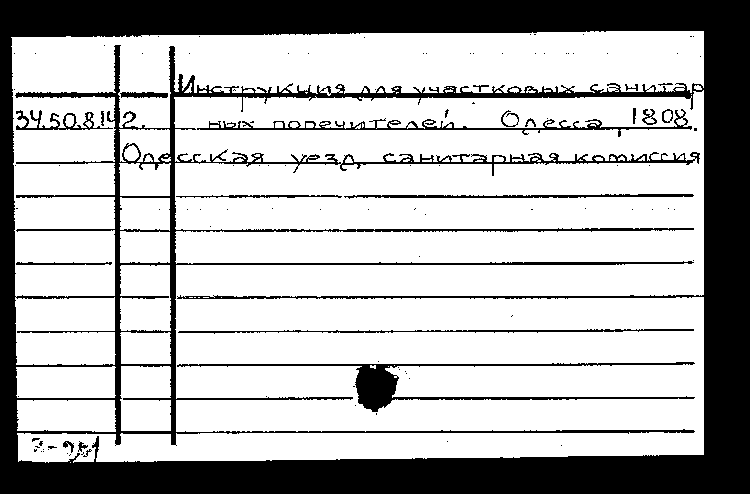 Инструкция для участковых санитар
34.50.8.142. ных попечителей. Одесса, 1808.
Одесская уезд. санитарная комиссия